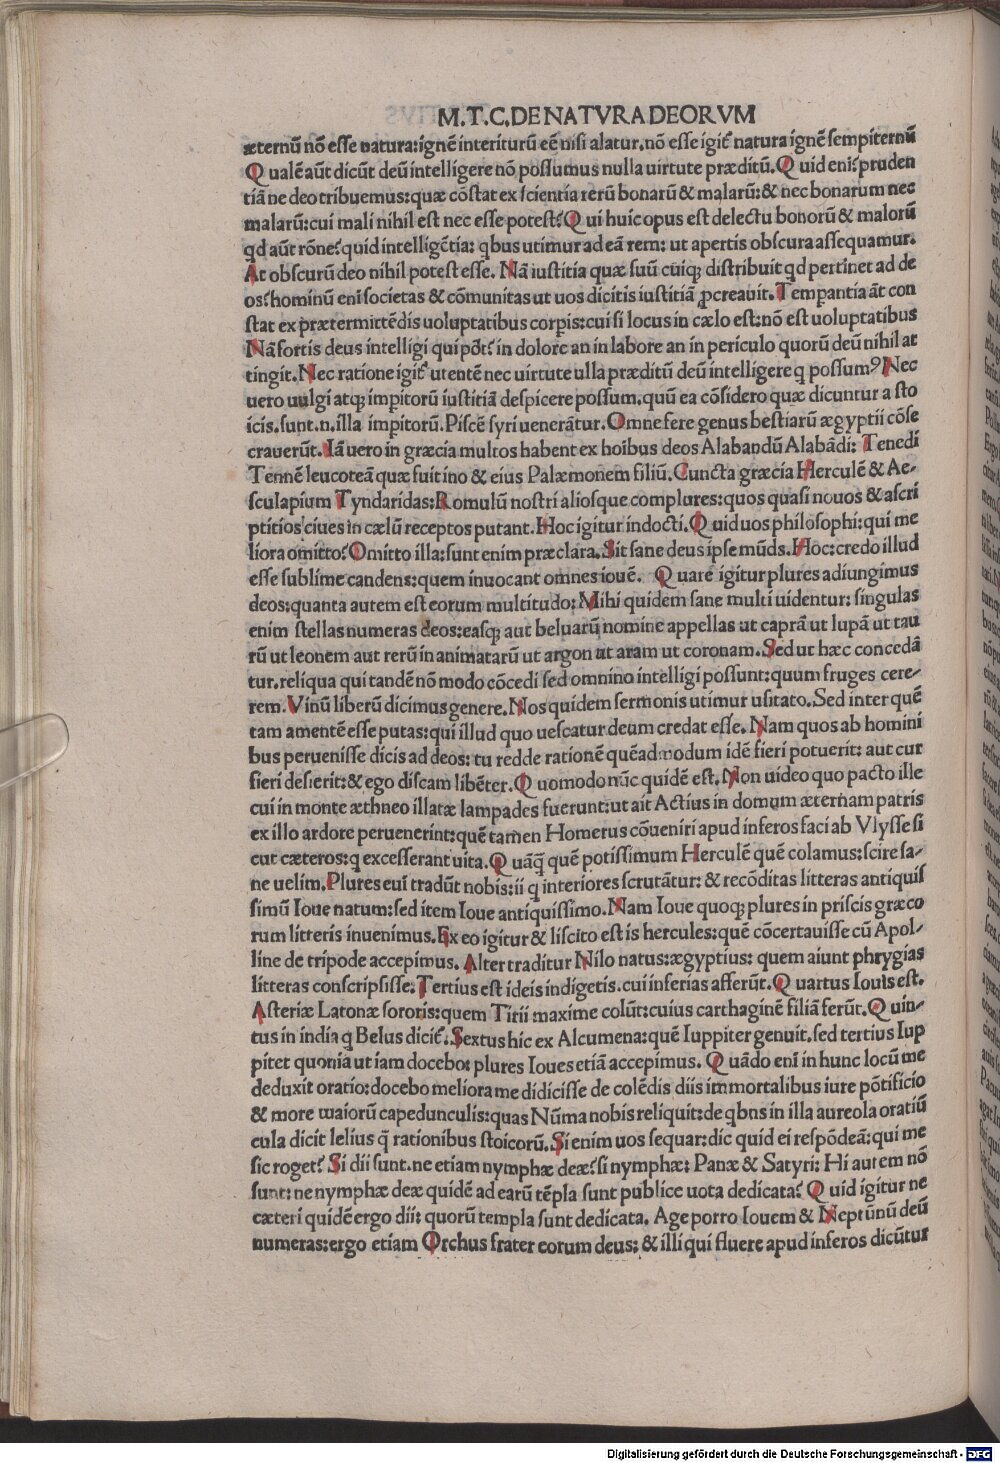 M.T.C.DE NATVRA DEORVM
æternū nō esse natura:ignē interiturū eē nisi alatur.nō esse igit̃ natura ignē sempiternū
Qualē aūt dicūt deū intelligere nō possumus nulla uirtute præditū.Quid eni?pruden
tiā ne deo tribuemus:quæ cōstat ex scientia rerū bonarū & malarū:& nec bonarum nec
malarū:cui mali nihil est nec esse potest?Qui huic opus est delectu bonorū & malorū
qd aūt rōne?quid intelligētia: qbus utimur ad eā rem: ut apertis obscura assequamur.
At obscurū deo nihil potest esse. Nā iustitia quæ suū cuiq; distribuit qd pertinet ad de
os?hominū eni societas & cōmunitas ut uos dicitis iustitiā ꝓcreauit.Tempantia āt con
stat ex prætermittēdis uoluptatibus corpis:cui si locus in cælo est:nō est uoluptatibus
Nā fortis deus intelligi qui pōt?in dolore an in labore an in periculo quorū deū nihil at
tingit.Nec ratione igit̃ utentē nec uirtute ulla præditū deū intelligere q possumꝰ Nec
uero uulgi atq; impitorū iustitiā despicere possum.quū ea cōsidero quæ dicuntur a sto
icis.sunt.n.illa impitorū.Piscē syri uenerātur.Omne fere genus bestiarū ægyptii cōse
crauerūt.Iā uero in græcia multos habent ex hoibus deos Alabandū Alabādi: Tenedi
Tennē leucoteā quæ fuit ino & eius Palæmonem filiū.Cuncta græcia Herculē & Ae-
sculapium Tyndaridas:Romulū nostri aliosque complures:quos quasi nouos & ascri
ptitios ciues in cælū receptos putant.Hoc igitur indocti.Quid uos philosophi:qui me
liora omitto?Omitto illa:sunt enim præclara.Sit sane deus ipse mūds.Hoc:credo illud
esse sublime candens:quem inuocant omnes iouē. Quare igitur plures adiungimus
deos:quanta autem est eorum multitudo:Mihi quidem sane multi uidentur: singulas
enim stellas numeras deos:easq; aut beluarū nomine appellas ut caprā ut lupā ut tau
rū ut leonem aut rerū in animatarū ut argon ut aram ut coronam.Sed ut hæc concedā
tur.reliqua qui tandē nō modo cōcedi sed omnino intelligi possunt:quum fruges cere-
rem.Vinū liberū dicimus genere.Nos quidem sermonis utimur usitato.Sed inter quē
tam amentē esse putas:qui illud quo uescatur deum credat esse.Nam quos ab homini
bus peruenisse dicis ad deos:tu redde rationē quēadmodum idē fieri potuerit: aut cur
fieri desierit:& ego discam libēter.Quomodo nūc quidē est.Non uideo quo pacto ille
cui in monte æthneo illatæ lampades fuerunt:ut ait Actius in domum æternam patris
ex illo ardore peruenerint:quē tamen Homerus cōueniri apud inferos faci ab Vlysse si
cut cæteros:q excesserant uita.Quāq̄ quē potissimum Herculē quē colamus:scire sa-
ne uelim.Plures eui tradūt nobis:ii q interiores scrutātur: & recōditas litteras antiquis
simū Ioue natum:sed item Ioue antiquissimo.Nam Ioue quoq; plures in priscis græco
rum litteris inuenimus.Ex eo igitur & liscito est is hercules:quē cōcertauisse cū Apol-
line de tripode accepimus. Alter traditur Nilo natus:ægyptius: quem aiunt phrygias
litteras conscripsisse.Tertius est ideis indigetis.cui inferias afferūt.Quartus Iouis est.
Asteriæ Latonæ sororis:quem Tirii maxime colūt:cuius carthaginē filiā ferūt.Quin-
tus in india q Belus dicit̃.Sextus hic ex Alcumena:quē Iuppiter genuit.sed tertius Iup
pitet quoniā ut iam docebo: plures Ioues etiā accepimus. Quādo eni in hunc locū me
deduxit oratio:docebo meliora me didicisse de colēdis diis immortalibus iure pōtificio
& more maiorū capedunculis:quas Nūma nobis reliquit:de qbns in illa aureola oratiū
cula dicit lelius q̄ rationibus stoicorū.Si enim uos sequar:dic quid ei respōdeā:qui me
sic roget?Si dii sunt.ne etiam nymphæ deæ?si nymphæ: Panæ & Satyri: Hi autem nō
sunt: ne nymphæ deæ quidē ad earū tēpla sunt publice uota dedicata?Quid igitur ne
cæteri quidē ergo dii: quorū templa sunt dedicata. Age porro Iouem & Neptūnū deū
numeras:ergo etiam Orchus frater eorum deus: & illi qui fluere apud inferos dicūtur
Digitalisierung gefördert durch die Deutsche Forschungsgemeinschaft - DFG